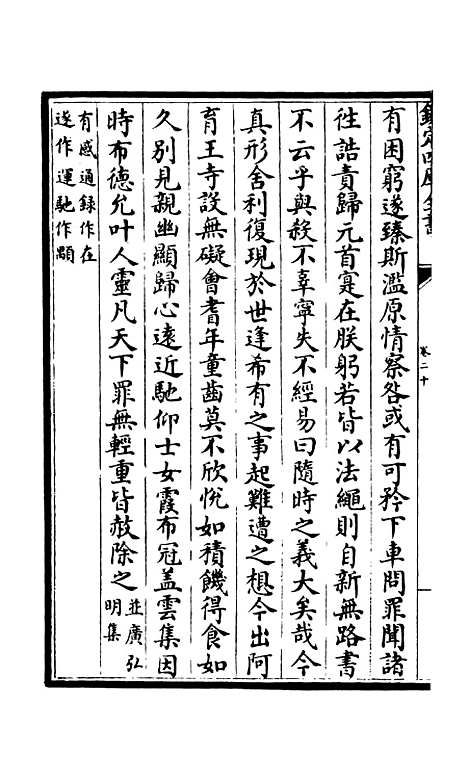 欽定四庫全書
卷二十
有困窮遂臻斯濫原情察咎或有可矜下車問罪聞諸
徃誥責歸元首寔在朕躬若皆以法繩則自新無路書
不云乎與殺不辜寧失不經易曰隨時之義大矣哉今
真形舍利復現於世逢希有之事起難遭之想今出阿
育王寺設無礙會耆年童齒莫不欣悅如積饑得食如
久別見親幽顯歸心遠近馳仰士女霞布冠盖雲集因
時布德允叶人靈凡天下罪無輕重皆赦除之並廣弘明集
有感通録作在
遂作運馳作顒